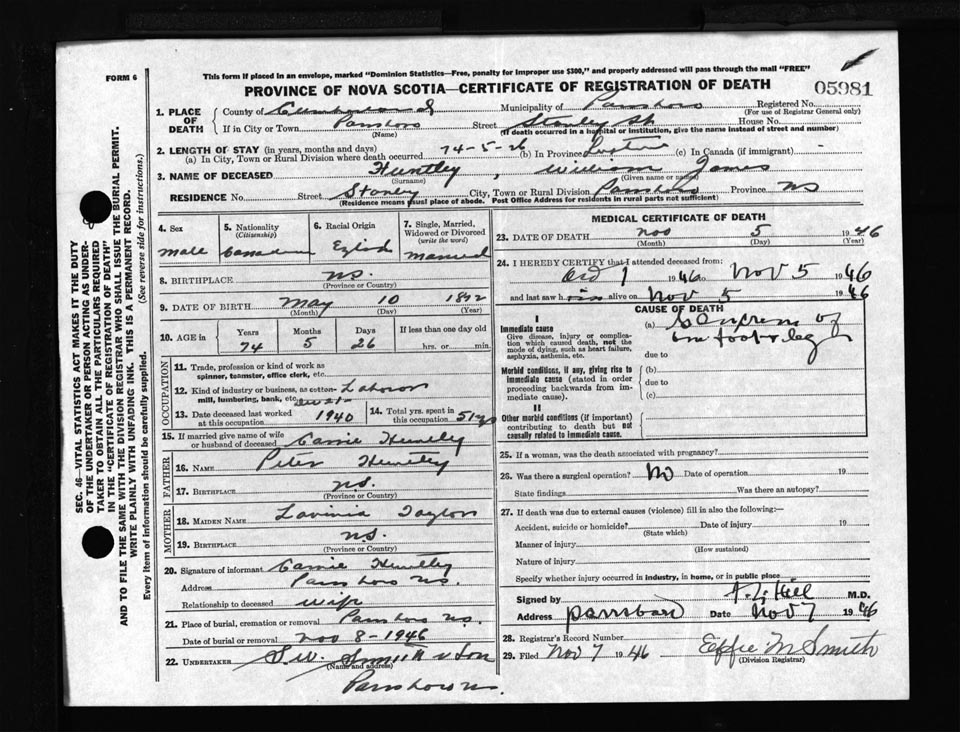 This form if placed in an envelope, marked "Dominion Statistics—Free, penalty for improper use $300," and properly addressed will pass through the mail "FREE"
FORM 6
PROVINCE OF NOVA SCOTIA—CERTIFICATE OF REGISTRATION OF DEATH
05981
1. PLACE OF DEATH
County of Cumberland Municipality of Parrsboro Registered No.
(For use of Registrar General only)
If in City or Town Parrsboro Street Stanley St House No.
(Name) (If death occurred in a hospital or institution, give the name instead of street and number)
2. LENGTH OF STAY (in years, months and days)
(a) In City, Town or Rural Division where death occurred 74-5-26 (b) In Province Lifetime (c) In Canada (if immigrant) -
3. NAME OF DECEASED Huntley, William James
(Surname) (Given name or names)
RESIDENCE No. Street Stanley City, Town or Rural Division Parrsboro Province NS
(Residence means usual place of abode. Post Office Address for residents in rural parts not sufficient)
4. Sex
Male
5. Nationality
(Citizenship)
Canadian
6. Racial Origin
English
7. Single, Married, Widowed or Divorced
(write the word)
Married
8. BIRTHPLACE N.S.
(Province or Country)
9. DATE OF BIRTH May 10 1872
(Month) (Day) (Year)
10. AGE in
Years Months Days If less than one day old
74 5 26 hrs. or min.
OCCUPATION
11. Trade, profession or kind of work as spinner, teamster, office clerk, etc.
12. Kind of industry or business, as cotton mill, lumbering, bank, etc. Laborer
13. Date deceased last worked at this occupation 1940
14. Total yrs. spent in this occupation 51 yrs
15. If married give name of wife or husband of deceased Carrie Huntley
FATHER
16. NAME Peter Huntley
17. BIRTHPLACE N.S.
(Province or Country)
MOTHER
18. MAIDEN NAME Lavinia Taylor
19. BIRTHPLACE N.S.
(Province or Country)
20. Signature of informant Carrie Huntley
Address Parrsboro N.S.
Relationship to deceased wife
21. Place of burial, cremation or removal Parrsboro N.S.
Date of burial or removal Nov 8-1946
22. UNDERTAKER S.W. Smith & Son
(Name and address)
Parrsboro N.S.
MEDICAL CERTIFICATE OF DEATH
23. DATE OF DEATH Nov 5 1946
(Month) (Day) (Year)
24. I HEREBY CERTIFY that I attended deceased from:
Oct 1 1946 to Nov 5 1946
and last saw him alive on Nov 5 1946
CAUSE OF DEATH
I
Immediate cause
Give disease, injury or complication which caused death, not the mode of dying, such as heart failure, asphyxia, asthenia, etc.
(a) of
foot & leg
due to
Morbid conditions, if any, giving rise to immediate cause (stated in order proceeding backwards from immediate cause).
(b)
due to
(c)
II
Other morbid conditions (if important) contributing to death but not causally related to immediate cause.
25. If a woman, was the death associated with pregnancy?
26. Was there a surgical operation? No Date of operation 19
State findings Was there an autopsy?
27. If death was due to external causes (violence) fill in also the following:—
Accident, suicide or homicide? Date of injury 19
(State which)
Manner of injury
(How sustained)
Nature of injury
Specify whether injury occurred in industry, in home, or in public place
Signed by Hill M.D.
Address Parrsboro Date Nov 7 1946
28. Registrar's Record Number
29. Filed Nov 7 1946 Effie M Smith
(Division Registrar)
SEC. 46—VITAL STATISTICS ACT MAKES IT THE DUTY
OF THE UNDERTAKER OR PERSON ACTING AS UNDER-
TAKER TO OBTAIN ALL THE PARTICULARS REQUIRED
IN THE "CERTIFICATE OF REGISTRATION OF DEATH"
AND TO FILE THE SAME WITH THE DIVISION REGISTRAR WHO SHALL ISSUE THE BURIAL PERMIT.
WRITE PLAINLY WITH UNFADING INK. THIS IS A PERMANENT RECORD.
Every item of information should be carefully supplied. (See reverse side for instructions.)